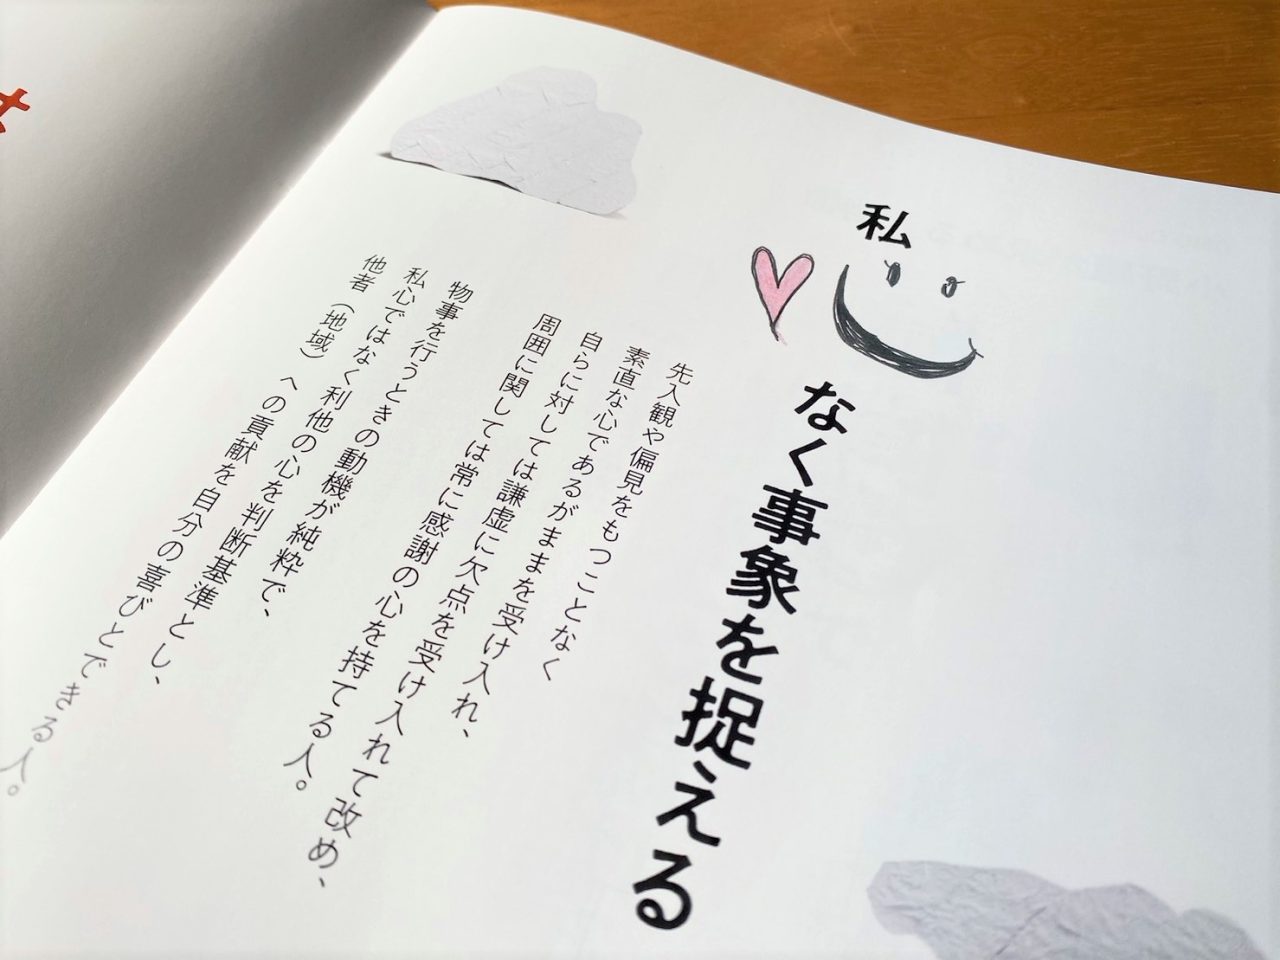 私
なく事象を捉える
先入観や偏見をもつことなく
素直な心であるがままを受け入れ、
自らに対しては謙虚に欠点を受け入れて改め、
周囲に関しては常に感謝の心を持てる人。
物事を行うときの動機が純粋で、
私心ではなく利他の心を判断基準とし、
他者（地域）への貢献を自分の喜びとできる人。